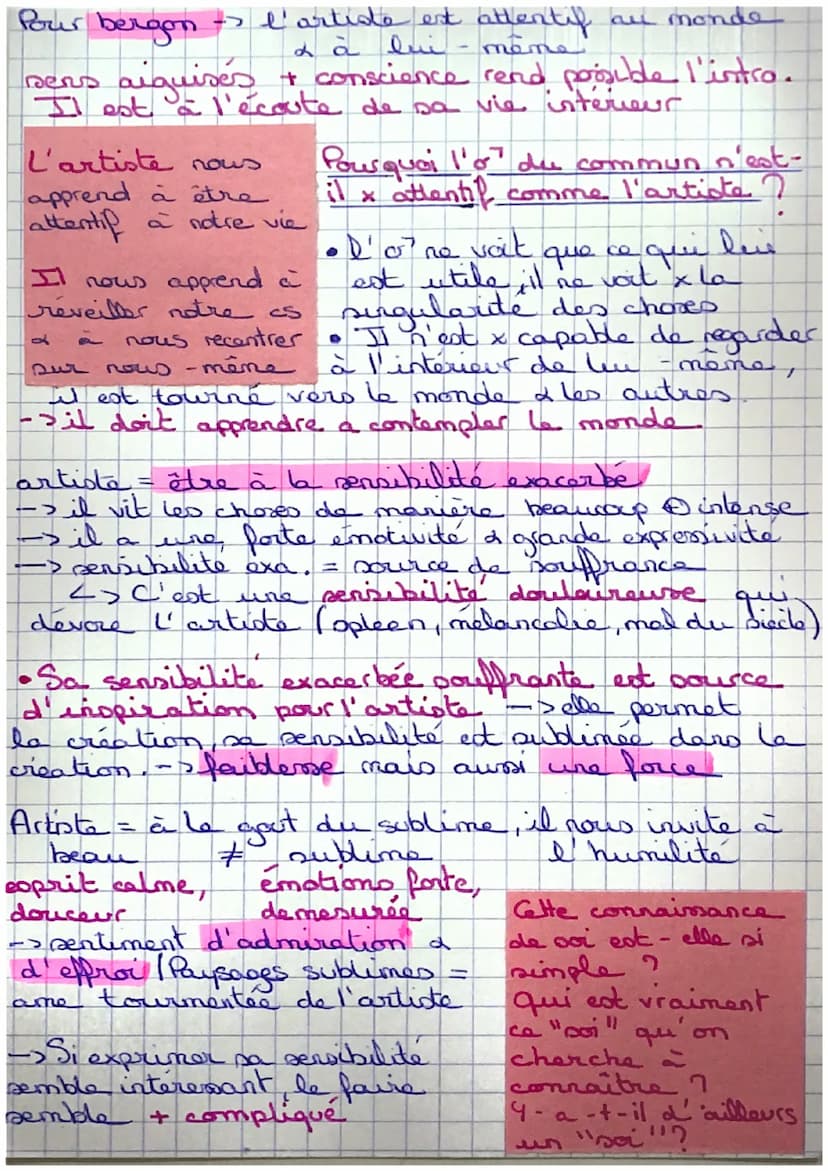 Pour bergon -> l'artiste est attentif au monde
& à lui-même
sens aiguisés + conscience rend possible l'intro.
Il est à l'écoute de sa vie intérieur
L'artiste nous
apprend à être
attentif à notre vie
Il nous apprend à
réveiller notre cs
& à nous recentrer
sur nous-même
Pourquoi l'♂ du commun n'est-
il x attentif comme l'artiste ?
• L'♂ ne voit que ce qui lui
est utile, il ne voit x la
singularité des choses
• Il n'est x capable de regarder
à l'intérieur de lui-même,
il est tourné vers le monde & les autres.
-> il doit apprendre a contempler le monde
artiste = être à la sensibilité exacerbé
-> il vit les choses de manière beaucoup ⊕ intense
-> il a une forte émotivité & grande expressivité
-> sensibilité exa. = source de souffrance
↳ C'est une sensibilité douloureuse qui
dévore l'artiste (spleen, mélancolie, mal du siècle)
• Sa sensibilité exacerbée souffrante est source
d'inspiration pour l'artiste -> elle permet
la création, sa sensibilité est sublimée dans la
création. -> faiblesse mais aussi une force
Artiste = à le goût du sublime, il nous invite à
l'humilité
beau ≠ sublime
esprit calme, émotions forte,
douceur demesurée
-> sentiment d'admiration &
d'effroi (Paysages sublimes =
ame tourmentée de l'artiste
-> Si exprimer sa sensibilité
semble intéressant, le faire
semble + compliqué
Cette connaissance
de soi est-elle si
simple ?
Qui est vraiment
ce "soi" qu'on
cherche à
connaître ?
Y-a-t-il d'ailleurs
un "soi" ?